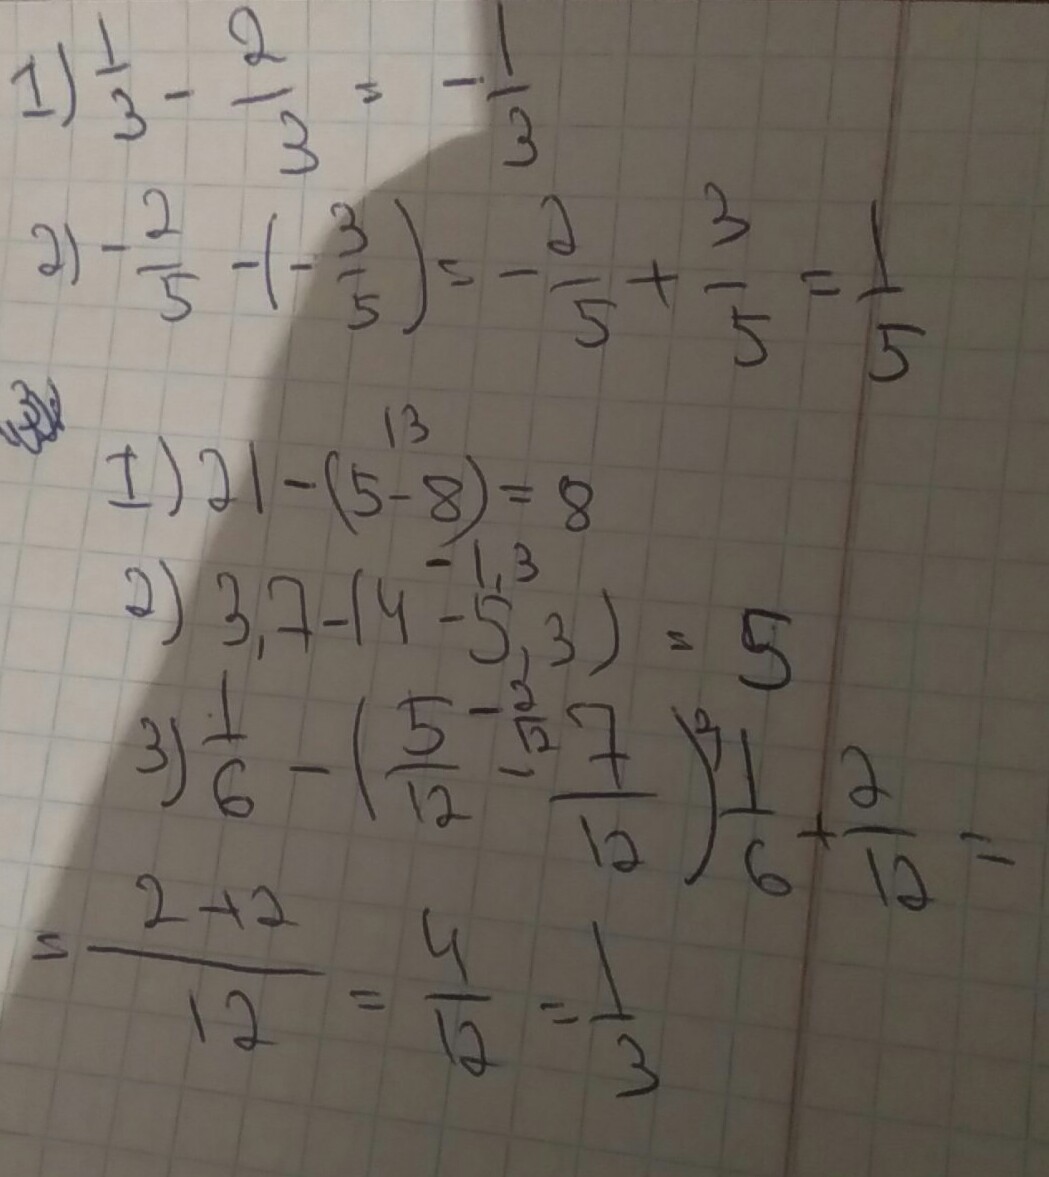 1) 1/3 - 2/3 = -1/3
2) -2/5 - (-3/5) = -2/5 + 3/5 = 1/5
13
1) 21 - (5 - 8) = 8
-1,3
2) 3,7 - (4 - 5,3) = 5
-2/12
3) 1/6 - (5/12 - 7/12) = 1/6 + 2/12 =
= 2+2/12 = 4/12 = 1/3